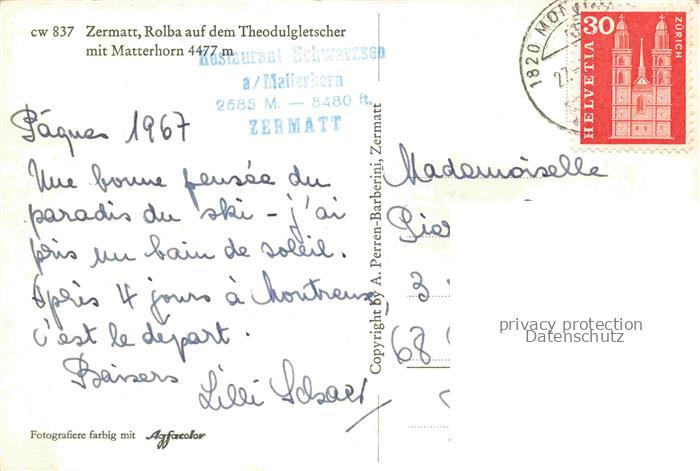 cw 837 Zermatt, Rolba auf dem Theodulgletscher
mit Matterhorn 4477 m
Restaurant Schwarzsee
a/Matterhorn
2585 M. — 8480 ft.
ZERMATT
Pâques 1967
Une bonne pensée du
paradis du ski – j'ai
pris un bain de soleil.
Après 4 jours à Montreux,
c'est le départ.
Baisers
Lilli
Fotografiere farbig mit Agfacolor
Copyright by A. Perren-Barberini, Zermatt
1820 MON
27
HELVETIA
30
ZÜRICH
Mademoiselle
3
68
privacy protection
Datenschutz